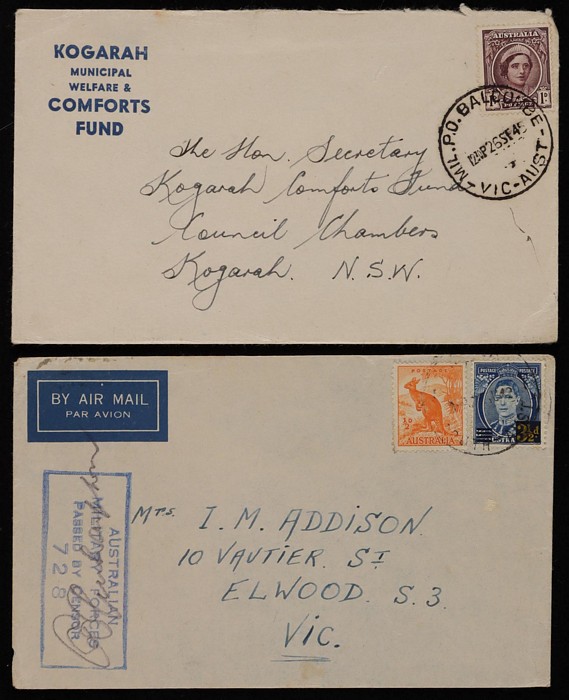 KOGARAH
MUNICIPAL
WELFARE &
COMFORTS
FUND
AUSTRALIA
1D
POSTAGE
MIL. P.O. BALCOMBE
26 SE 45
VIC-AUST-
The Hon. Secretary
Kogarah Comforts Fund
Council Chambers
Kogarah. N.S.W.
BY AIR MAIL
PAR AVION
POSTAGE
½D
AUSTRALIA
POSTAGE POSTAGE
3½d
AUSTRALIAN
MILITARY FORCES
PASSED BY CENSOR
728
Mrs. I. M. ADDISON.
10 VAUTIER. ST
ELWOOD. S.3.
VIC.